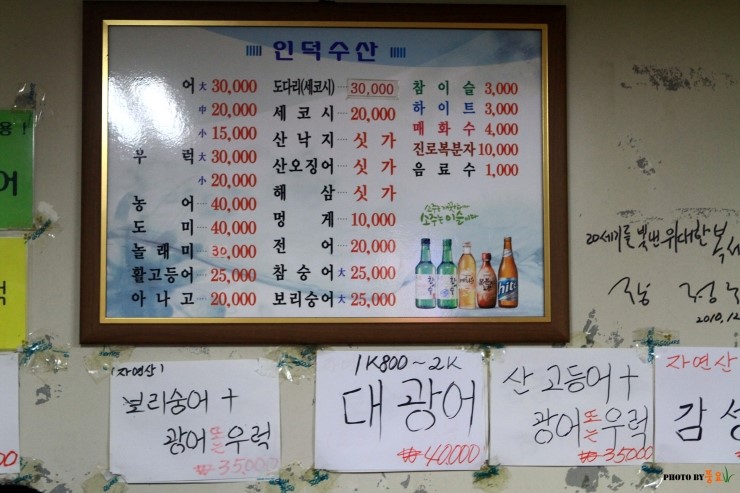 인덕수산
어 大 30,000
中 20,000
小 15,000
우 럭 大 30,000
小 20,000
농 어 40,000
도 미 40,000
놀래미 30,000
활고등어 25,000
아나고 20,000
도다리(세코시) 30,000
세코시 20,000
산낙지 싯가
산오징어 싯가
해 삼 싯가
멍 게 10,000
전 어 20,000
참숭어 大 25,000
보리숭어 大 25,000
참이슬 3,000
하이트 3,000
매화수 4,000
진로복분자 10,000
음료수 1,000
소주는 이슬이다
hite
용!
어
20세기를 빛낸 위대한 복서
2010.12
(자연산)
보리숭어 +
광어 또는 우럭
₩35,000
1K800~2K
대 광어
₩40,000
산 고등어 +
광어 또는 우럭
₩35,000
자연산
감성
PHOTO BY